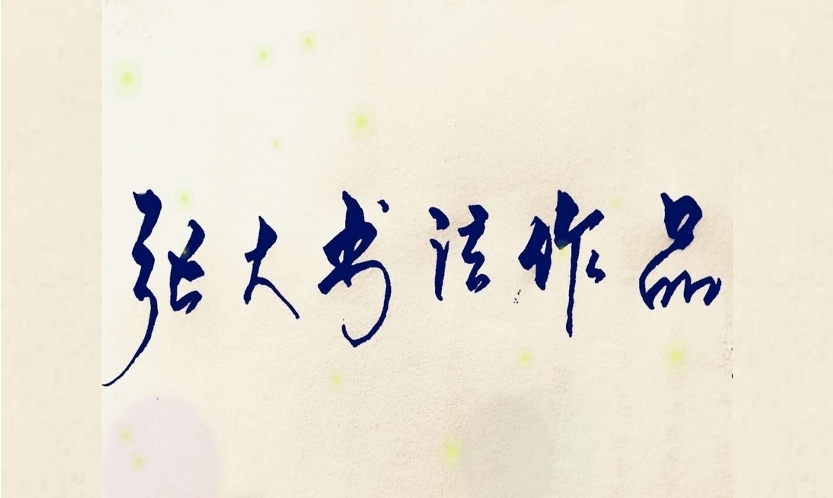 张大书法作品